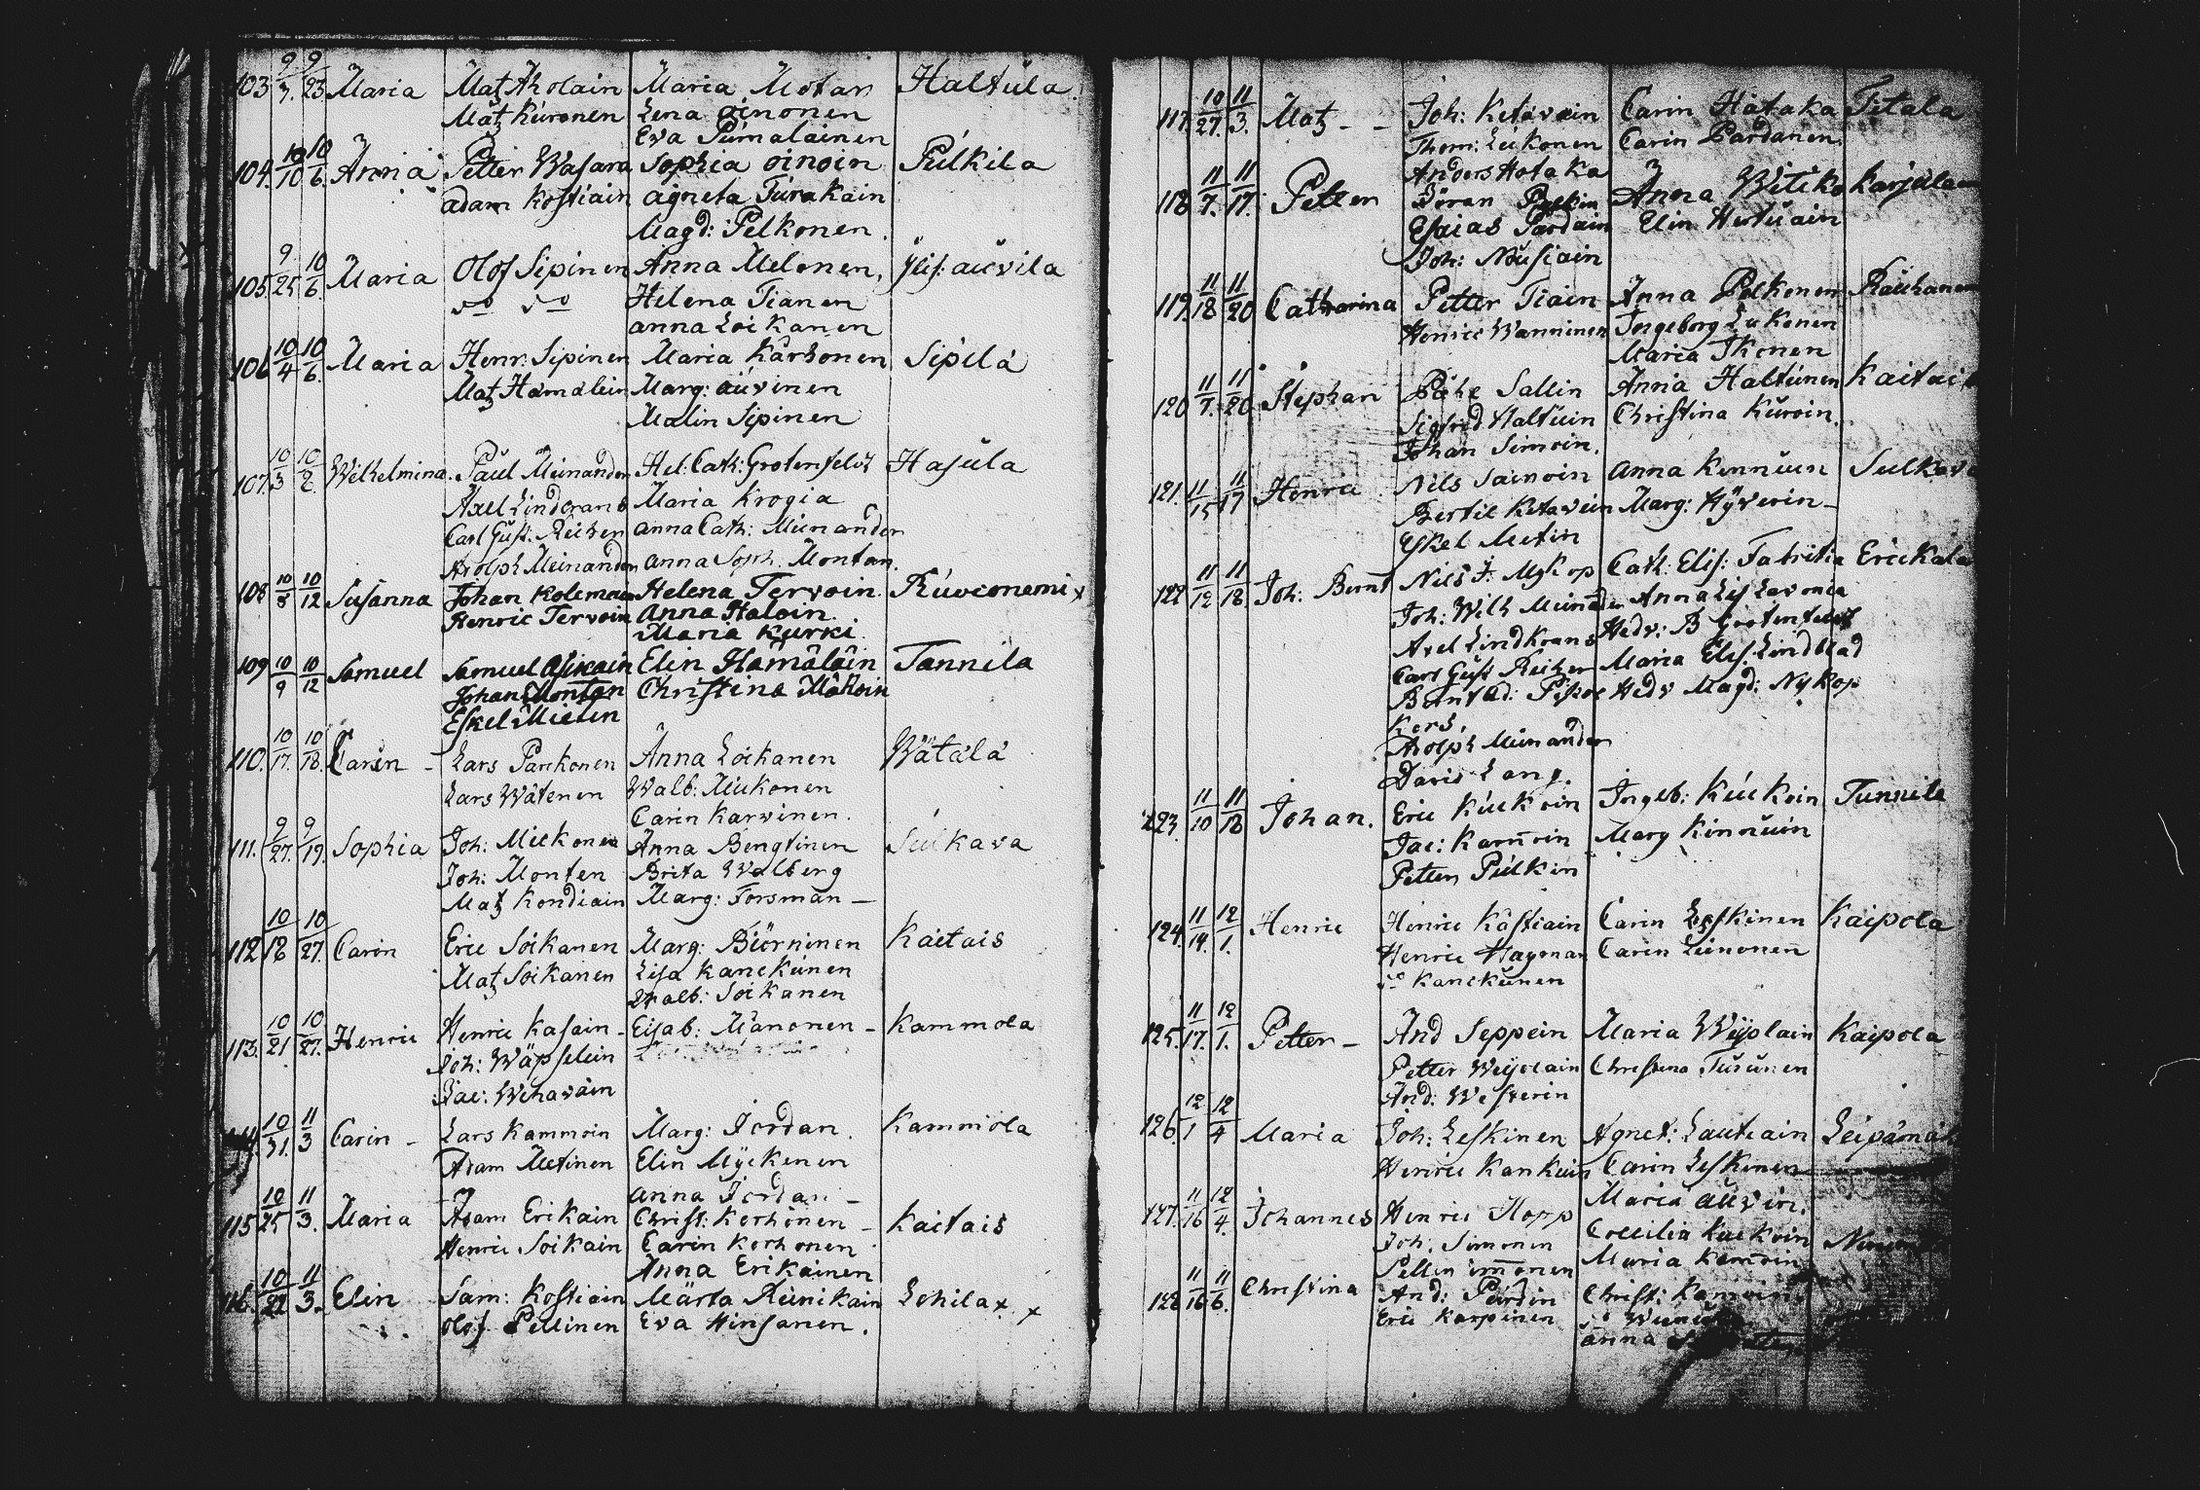 103. 9/7. 9/23 Maria Matz Aholain Maria Motar Haltula
Matz Kuronen Lena Oinonen
Eva Pumalainen
104. 10/10 10/6. Anna Petter Wasara Sophia Oinoin Pulkila
Adam Kostiain Agneta Turakain
Magd: Pelkonen.
105. 9/25 10/6. Maria Olof Sipinen Anna Melonen, auvila
Do Do Helena Tianen
Anna Loikanen
106 10/4 10/6. Maria Henr: Sipinen Maria Karhonen Sipilä
Matz Hämäläin Marg: Auvinen
Malin Sipinen
107. 10/3 10/2. Wilhelmina. Paul Meinander Hel: Cath: Grotenfelt Hasula
Axel Lindcrans Maria Krogia
Carl Gust: Reiher Anna Cath: Meinander
Arolph Meinander Anna Soph. Montan.
108 10/8 10/12 Susanna Johan Kolemain Helena Tervoin.
Henric Tervoin Anna Haloin.
Maria Kurki.
109 10/9 10/12 Samuel Samuel Elin Hämäläin Tannila
Johan Monton Christina Mäkoin
Eskel Mieten
110. 10/17. 10/18. Carin - Lars Parkonen Anna Loikanen Wätälä
Lars Wätenen Walb: Miekonen
Carin Karvinen.
111. 9/27. 9/19. Sophia Joh: Miekonen Anna Bengtinen Sulkava
Joh: Monten Brita Walberg
Matz Kondiain Marg: Forsman -
112 10/18 10/27. Carin Eric Soikanen Marg: Biörninen Kaitais
Matz Soikanen Lisa Kanckunen
Walb: Soikanen
113. 10/21. 10/27. Henric Henric Kasain - Elisab: Mänonen - Kammola
Joh: Wäpsälein
Jac: Wihavain
10/31. 11/3 Carin - Lars Kammoin Marg: Jordan. Kammola
Adam Metinen Elin Myckenen
Anna Jordan -
115 10/25 11/3. Maria Adam Erikain Christ: Korhonen - Kaitais
Henric Soikain Carin Korhonen
Anna Erikainen
116. 10/22 11/3. Elin Sam: Kostiain Märta Reinikain Lohila x x
Olof Pellinen Eva Hinsanen.
117. 10/27. 11/3. Matz - - Joh: Ketavain Carin Hataka Titala
Thom: Leikonen Carin Pardanen.
Anders Hotaka
118 11/7. 11/17. Petter Jöran Paskin Anna Witiko
Esaias Pardain Elin Hertuain
Joh: Nousiain
119. 11/18 11/20 Catharina Petter Tiain Anna Pelkonen
Henric Wanninen Ingeborg Lukonen
Maria Ikonen
120 11/7. 11/20 Stephan Påhl Sallin Anna Haltunen
Sigfrid Haltuin Christina Kuroin.
Johan Simoin.
121. 11/15 11/17 Henric Nils Sainoin Anna Kennuin
Bertil Ketavein Marg: Hyverin -
Eskel Metin
122 11/12 11/18. Joh: Bernt Nils J: Nykop Cath: Elis: Fabritia Erickala
Joh: Wilh Meinander Anna Lis Lavonia
Axel Lindkrans Hedv: B Grotenfelt
Carl Gust Reiher Maria Elis: Lindblad
Hedv Magd: Nykop
Kers.
Arolph Meinander
Daris Lang.
123. 11/10 11/18 Johan. Eric Kuckoin Ingeb: Kuckoin Tunnila
Jac: Kam̅oin Marg Kinnuin
Petter Pulkin
124. 11/19. 12/1. Henric Henric Kåstiain Carin Leskinen Kaipola
Henric Hagman Carin Leinonen
Do Kanckunen
125. 11/17. 12/1. Petter - And Seppein Maria Weijolain Kaipola
Petter Weijolain Christina
And: Westerin
126. 12/1 12/4 Maria Joh: Leskinen Agnet: Lautiain
Henric Kankuin Carin Leskinen
Maria Auvin.
127. 11/16 12/4. Johannes Henric Hopp Coecilia Kuckoin
Joh. Simonen Maria Kam̅oin
Pellin Im̅onen
128 11/16 11/6. Christina And: Pardin Christ: Kamoin
Eric Karpinen
Anna